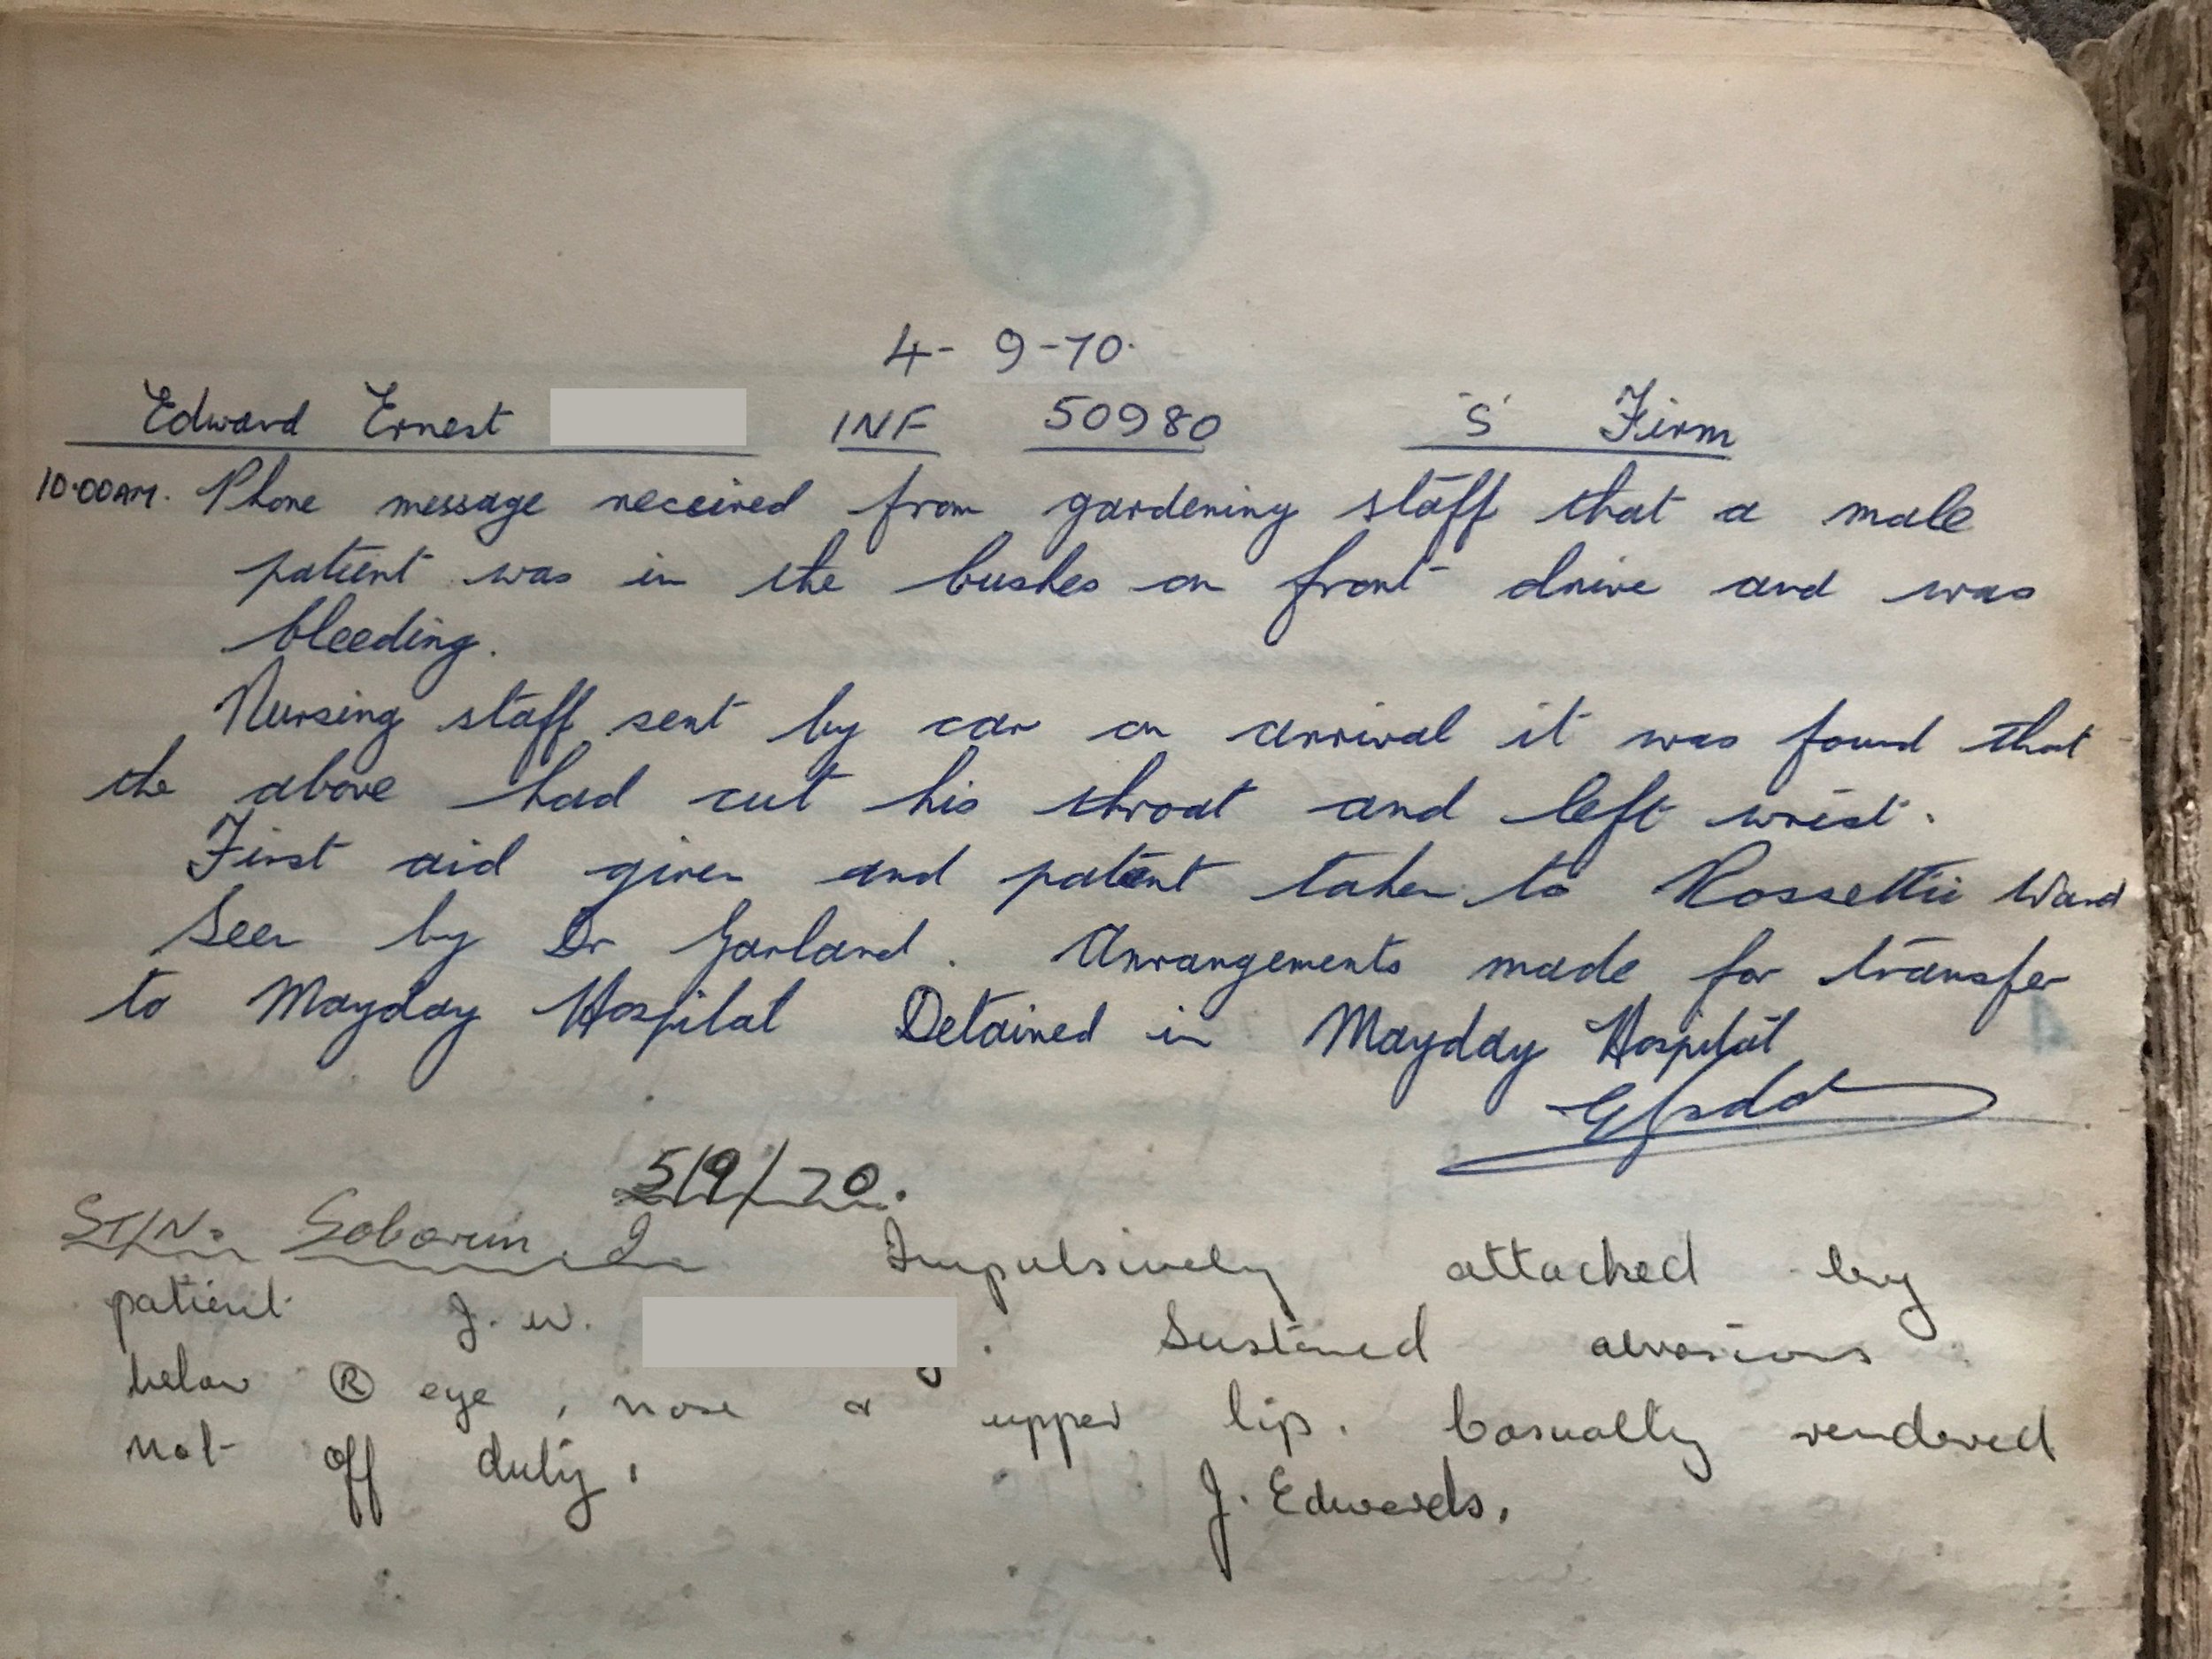 4-9-70.
Edward Ernest INF 50980 'S' Firm
10·00AM. Phone message received from gardening staff that a male
patient was in the bushes on front drive and was
bleeding.
Nursing staff sent by car on arrival it was found that
the above had cut his throat and left wrist.
First aid given and patient taken to Rossettii Ward
Seen by Dr Garland. Arrangements made for transfer
to Mayday Hospital Detained in Mayday Hospital
5/9/70.
ST/N. Impulsively attacked by
patient J. W. . Sustained abrasions
below R eye, nose & upper lip. Casually rendered
not off duty.
J. Edwards.